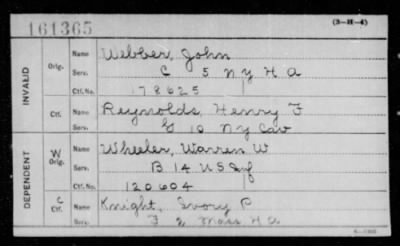 161365
(3-H-4)
INVALID
Orig.
Name Webber, John
Serv. C 5 N Y H A
Ctf. No. 178625
Ctf.
Name Reynolds, Henry F
Serv. G 10 N Y Cav
DEPENDENT
W Orig.
Name Wheeler, Warren W
Serv. B 14 U S Inf
Ctf. No. 120604
C Ctf.
Name Knight, Ivory P
Serv. F 2 Mass H A